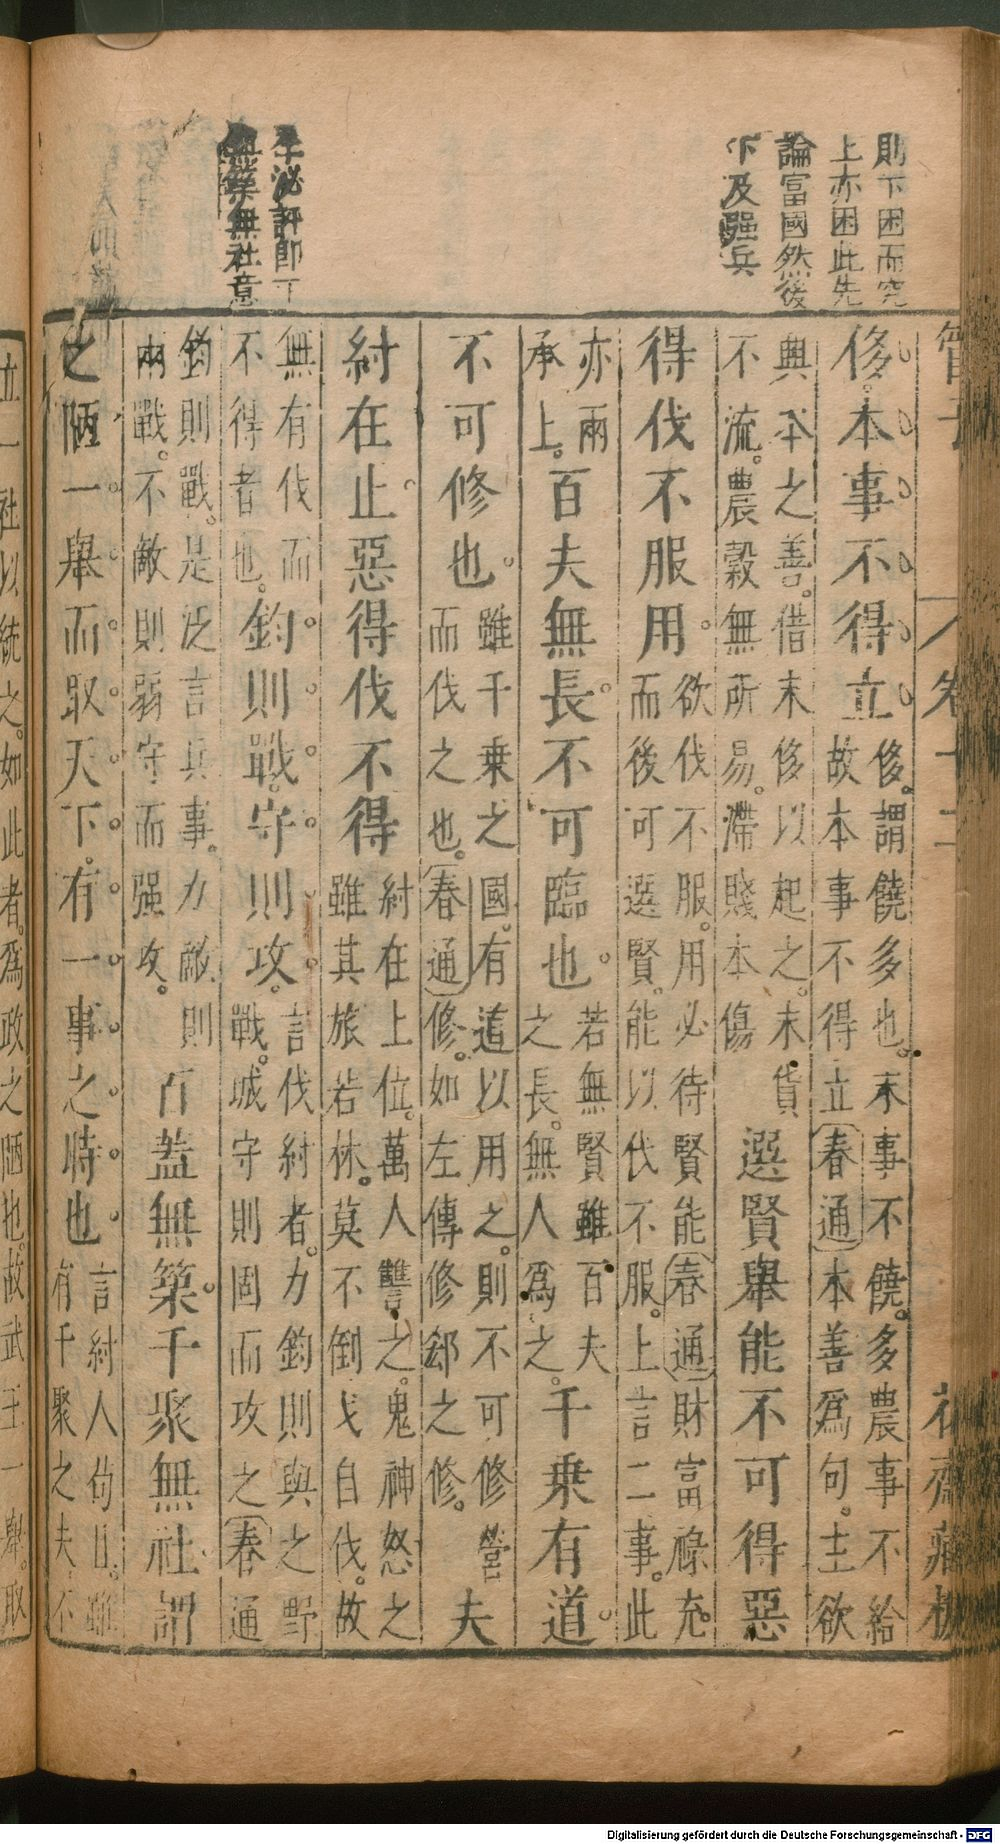 則下困而究
上亦困此先
論富國然後
下及强兵
無築無社意
管子 卷十二 花齋藏板
侈本事不得立侈謂饒多也末事不饒多農事不給
故本事不得立春通本善爲句主欲
興本之善借末侈以起之末貨
不流農穀無所易滯賤本傷選賢舉能不可得惡
得伐不服用欲伐不服用必待賢能春通財富祿充
而後可選賢能以伐不服上言二事此
亦兩
承上百夫無長不可臨也若無賢雖百夫
之長無人爲之千乘有道
不可修也雖千乘之國有道以用之則不可修營
而伐之也春通修如左傳修郤之修夫
紂在止惡得伐不得紂在上位萬人讐之鬼神怒之
雖其旅若林莫不倒戈自伐故
無有伐而
不得者也鈞則戰守則攻言伐紂者力鈞則與之野
戰城守則固而攻之春通
鈞則戰是泛言兵事力敵則
兩戰不敵則弱守而强攻百蓋無築千聚無社謂
之陋一舉而取天下有一事之時也言紂人苟且雖
有千聚之夫不
立一社以統之如此者爲政之陋也故武王一舉取
Digitalisierung gefördert durch die Deutsche Forschungsgemeinschaft - DFG